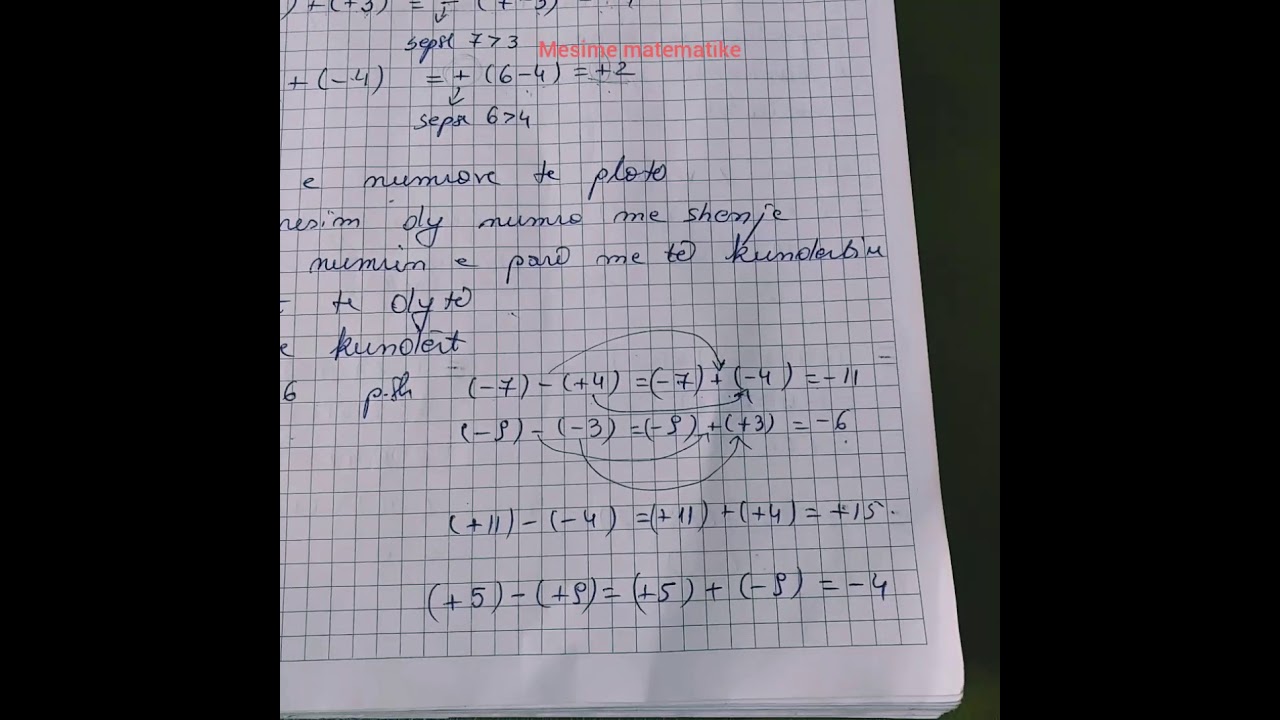 ) + (+3) = - (7-3) =
sepse 7>3
Mesime matematike
+ (-4) = + (6-4) = +2
sepse 6>4
e numrave te plote
dy numra me shenje
numrin e pare me të kundertin
te dytë
e kundert
6 p.sh (-7) - (+4) = (-7) + (-4) = -11
(-9) - (-3) = (-9) + (+3) = -6
(+11) - (-4) = (+11) + (+4) = +15.
(+5) - (+9) = (+5) + (-9) = -4